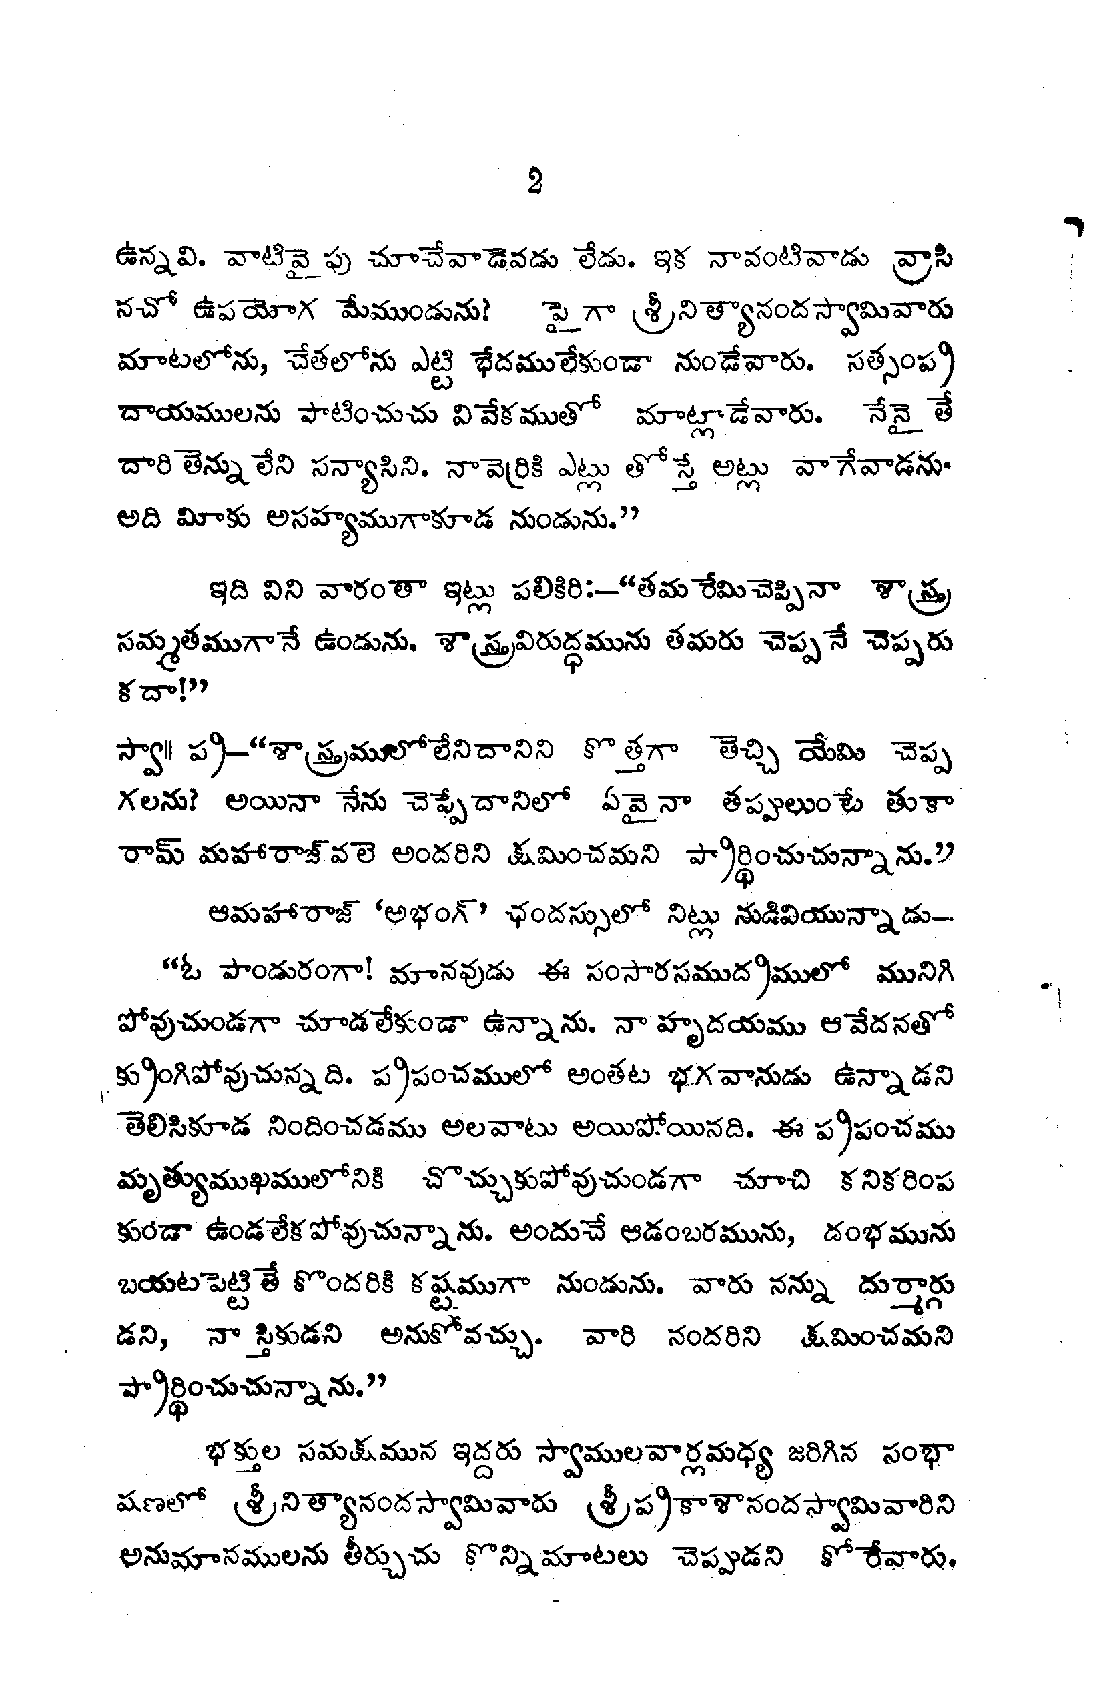 2
ఉన్నవి. వాటివైపు చూచేవాడెవడు లేడు. ఇక నావంటివాడు వ్రాసి
నచో ఉపయోగ మేముండును? పైగా శ్రీనిత్యానందస్వామివారు
మాటలోను, చేతలోను ఎట్టి భేదములేకుండా నుండేవారు. సత్సంప్ర
దాయములను పాటించుచు వివేకముతో మాట్లాడేవారు. నేనైతే
దారితెన్నులేని సన్యాసిని. నావెర్రికి ఎట్లు తోస్తే అట్లు వాగేవాడను.
అది మీకు అసహ్యముగాకూడ నుండును.”
ఇది విని వారంతా ఇట్లు పలికిరి:—“తమరేమిచెప్పినా శాస్త్ర
సమ్మతముగానే ఉండును. శాస్త్రవిరుద్ధమును తమరు చెప్పనే చెప్పరు
కదా!”
స్వా॥ ప్ర—“శాస్త్రములోలేనిదానిని కొత్తగా తెచ్చి యేమి చెప్ప
గలను? అయినా నేను చెప్పేదానిలో ఏవైనా తప్పులుంటే తుకా
రామ్ మహారాజ్‌వలె అందరిని క్షమించమని ప్రార్థించుచున్నాను.”
ఆమహారాజ్ ‘అభంగ్’ ఛందస్సులో నిట్లు నుడివియున్నాడు—
“ఓ పాండురంగా! మానవుడు ఈ సంసారసముద్రములో మునిగి
పోవుచుండగా చూడలేకుండా ఉన్నాను. నా హృదయము ఆవేదనతో
క్రుంగిపోవుచున్నది. ప్రపంచములో అంతట భగవానుడు ఉన్నాడని
తెలిసికూడ నిందించడము అలవాటు అయిపోయినది. ఈ ప్రపంచము
మృత్యుముఖములోనికి చొచ్చుకుపోవుచుండగా చూచి కనికరింప
కుండా ఉండలేకపోవుచున్నాను. అందుచే ఆడంబరమును, దంభమును
బయటపెట్టితే కొందరికి కష్టముగా నుండును. వారు నన్ను దుర్మార్గు
డని, నాస్తికుడని అనుకోవచ్చు. వారి నందరిని క్షమించమని
ప్రార్థించుచున్నాను.”
భక్తుల సమక్షమున ఇద్దరు స్వాములవార్లమధ్య జరిగిన సంభా
షణలో శ్రీనిత్యానందస్వామివారు శ్రీప్రకాశానందస్వామివారిని
అనుమానములను తీర్చుచు కొన్నిమాటలు చెప్పుడని కోరేవారు.